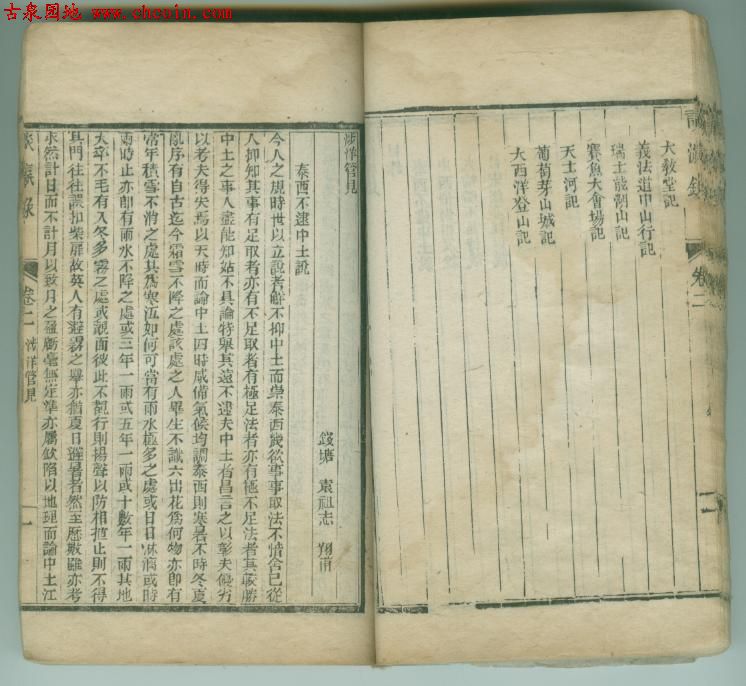 古泉园地 www.chcoin.com
大教堂記
義法道中山行記
瑞士龍潮山記
賽魚大會場記
天士河記
葡萄芽山城記
大西洋登山記
卷二
涉洋管見
泰西不逮中土說
錢塘 袁祖志 翔甫
今人之規時世以立說者鮮不抑中土而崇泰西幾欲事事取法不惜舍已從
人抑知其事有足取者亦有不足取者有極足法者亦有極不足法者其較勝
中土之事人盡能知姑不具論特舉其遠不逮夫中土者昌言之以彰夫優劣
以考夫得失焉以天時而論中土四時咸備氣候均調泰西則寒暑不時冬夏
亂序有自古迄今霜雪不降之處該處之人畢生不識六出花為何物亦卽有
常年積雪不消之處其為寒沍如何可當有雨水極多之處或日日淋漓或時
雨時止亦卽有雨水不降之處或三年一雨或五年一雨或十數年一雨其地
大率不毛有入冬多霧之處或覿面彼此不覩行則揚聲以防相揸止則不得
其門往往誤扣柴扉故英人有避霧之舉亦猶夏日避暑者然至歷數雖亦考
求然計日而不計月以致月之盈虧毫無定準亦屬欽陷以地理而論中土江
談瀛錄
卷二 涉洋管見
一